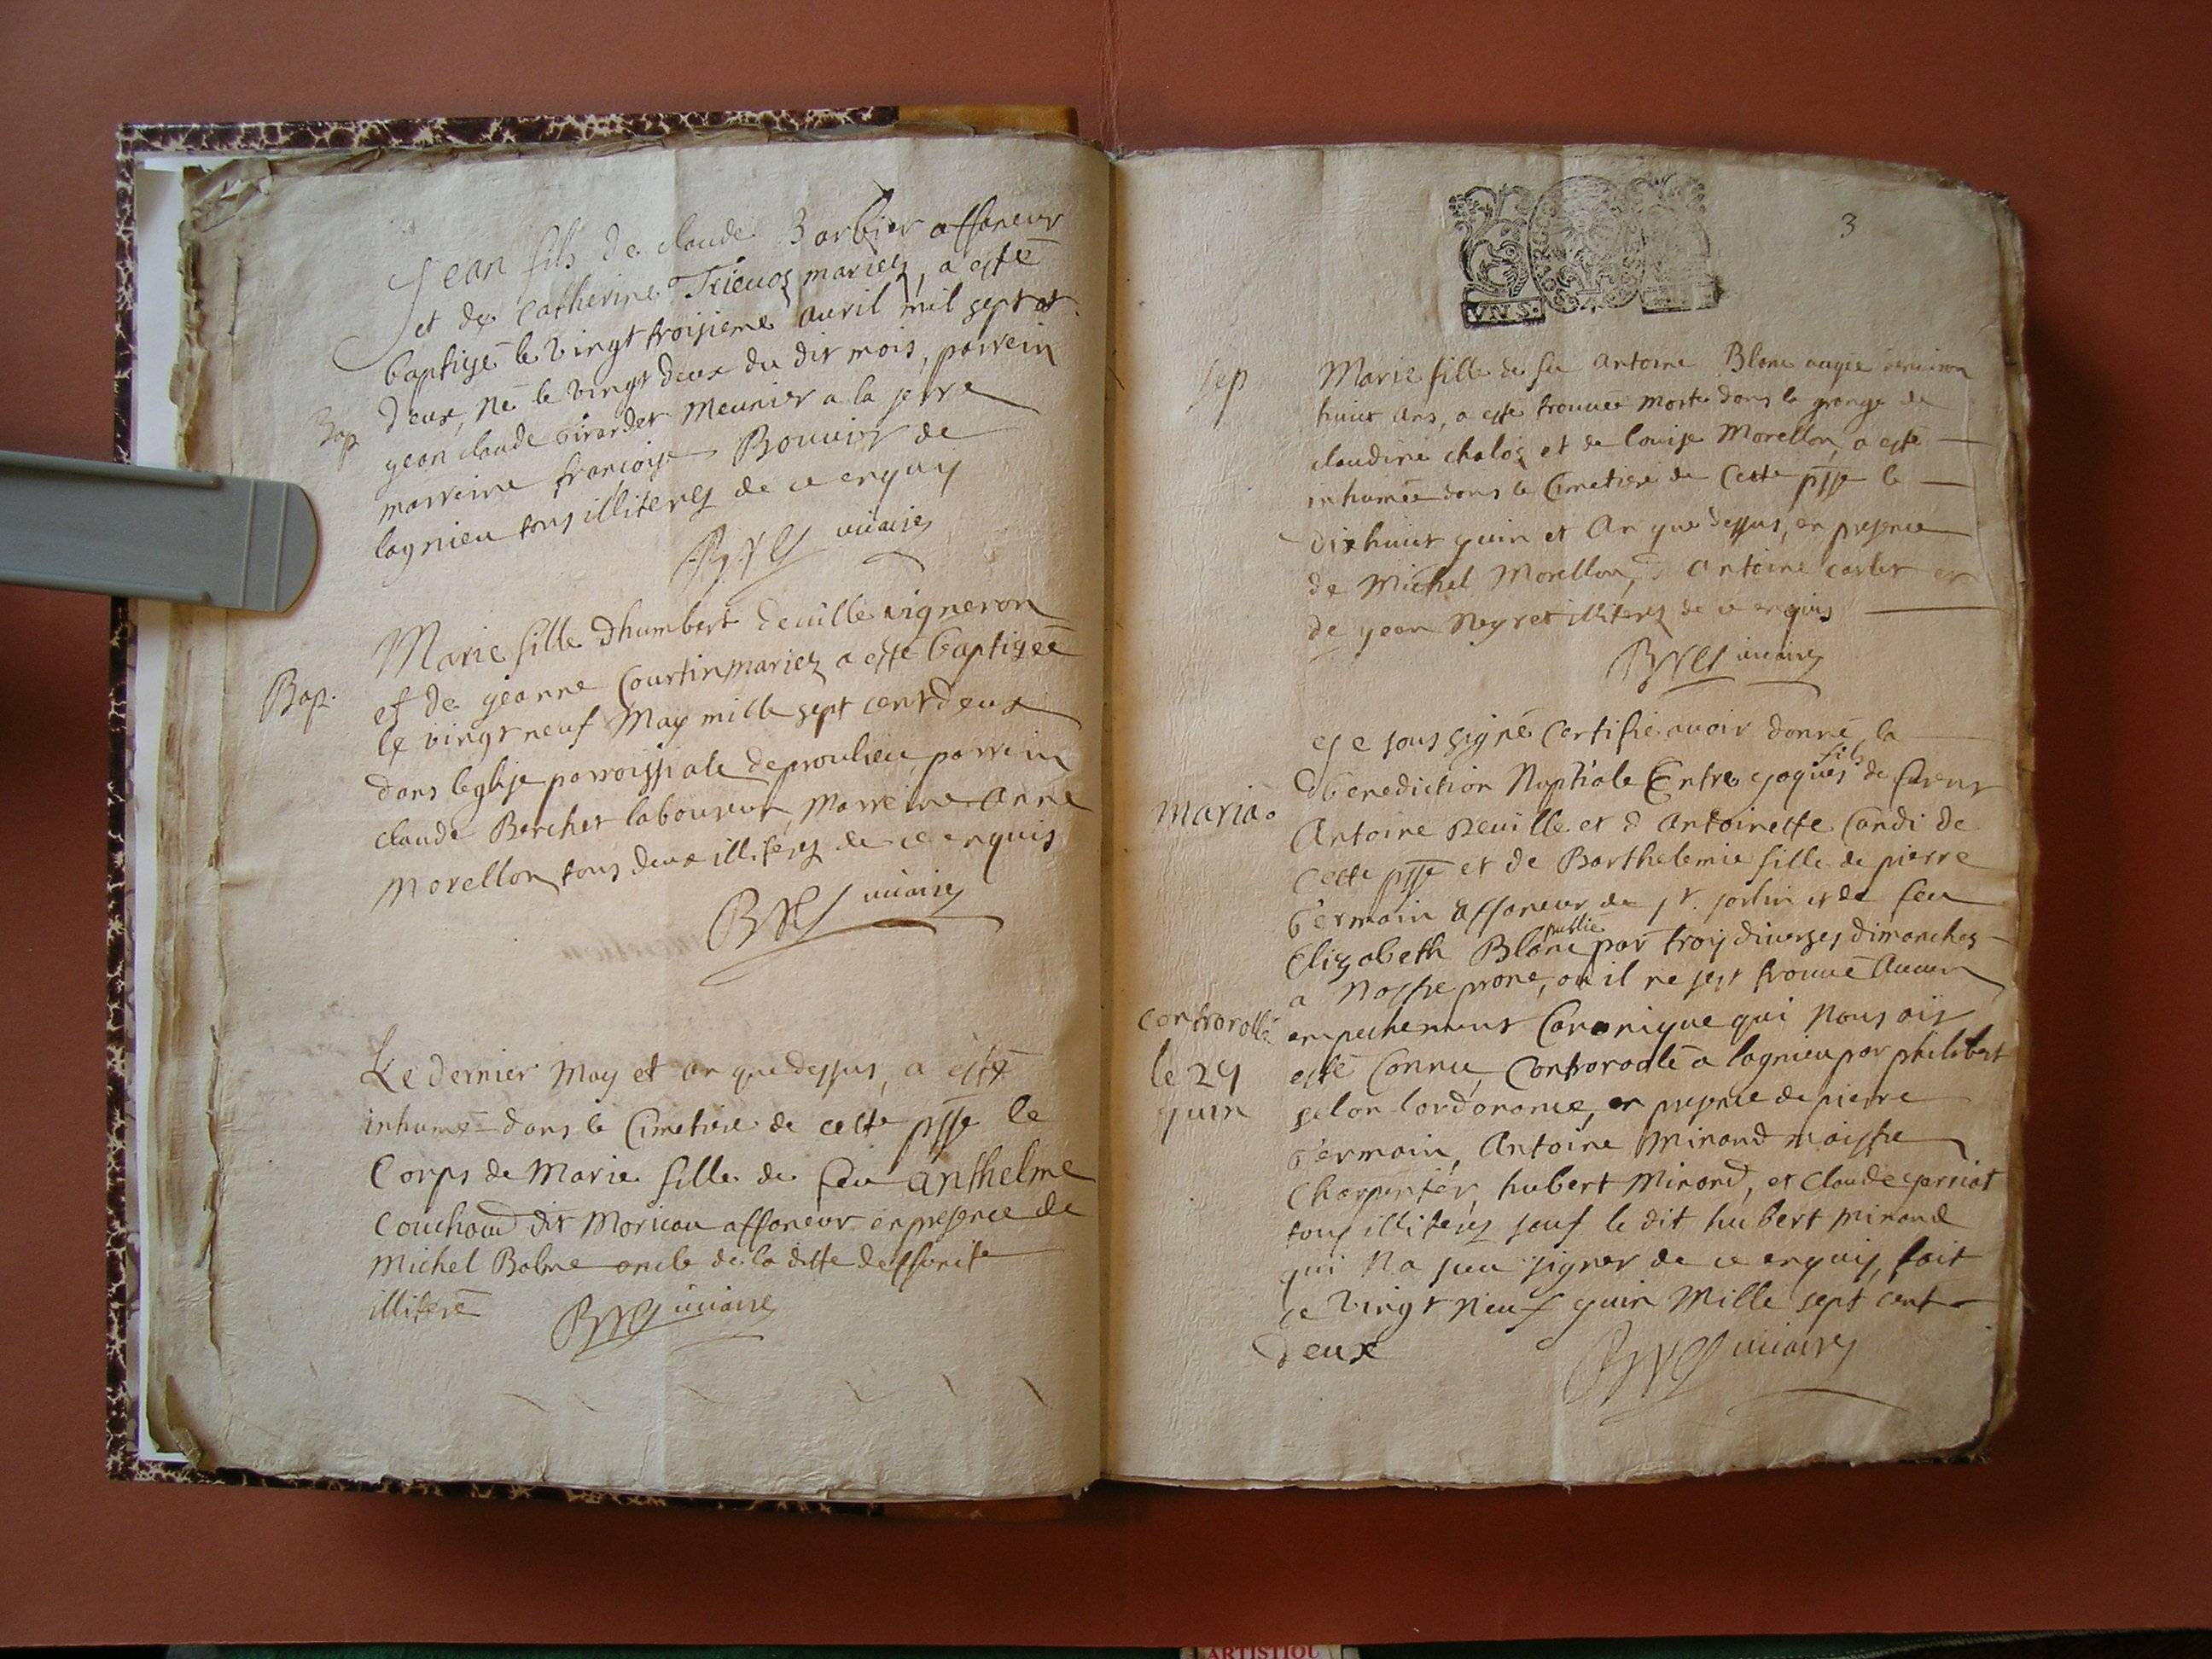 Jean fils de claude Barbier affaneur
et de Catherine Trieuoz mariez, a esté
baptisé le vingt troisieme auril mil sept et
Bap
deux, né le vingt deux du dit mois, parrein
jean claude girardet meunier a la serre
marreine francoise Bouuier de
lagnieu tous illiterez de ce enquis
vicaire
Marie fille dhumbert deuille vigneron
Bap.
et de jeanne Courtin mariez a esté baptizée
le vingt neuf May mille sept cent deux
dans leglise parroissiale de proulieu, parrein
claude Berchet laboureur, Marreine Anne
Morellon tous deux illiterez de ce enquis
vicaire
Le dernier May et an que dessus, a esté
inhumé dans le Cimetiere de cette psse le
Corps de Marie fille de feu anthelme
Couchoud dit Moricau affaneur en presence de
Michel Balme oncle de la ditte deffuncte
illiteré vicaire
3
Sep
Marie fille de feu antoine Blanc augée denuiron
huict ans, a esté trouuée morte dans la grange de
claudine chaloz et de louise Morellon, a esté
inhumée dans le Cimetiere de Cette psse le
dixhuict juin et An que dessus, en presence
de Michel Morellon, d antoine carlet et
de jean Neyret illiterez de ce enquis
vicaire
Je sous signé Certifie auoir donné la
fils
Benediction Nuptiale Entre jaques de feu
Maria.
Antoine Deuille et d Antoinette Candi de
Cette psse et de Barthelemie fille de pierre
Germain affaneur de st. sorlin et de feu
publié
Elizabeth Blanc par trois diuerses dimanches
a Nostre prone, ou il ne sest trouué Aucun
Controrollé
empechement Canonique qui Nous ait
le 29
esté Connu, Controrollé a lagnieu par philibert
juin
selon lordonance, en presence de pierre
Germain, Antoine Minand maistre
Charpentier, hubert Minand, et Claude
tous illiterez sauf le dit hubert minand
qui Na sceu signer de ce enquis, fait
ce vingt Neuf juin Mille sept cent
deux vicaire